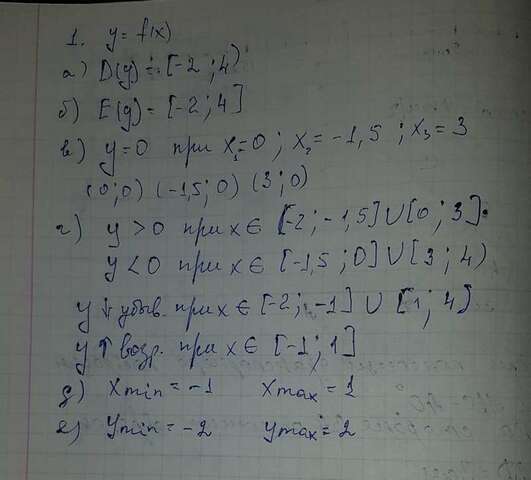 1. y = f(x)
а) D(y) = [-2; 4)
б) E(y) = [-2; 4]
в) y=0 при x₁=0; x₂= -1,5; x₃= 3
(0;0) (-1,5; 0) (3; 0)
г) y > 0 при x ∈ [-2; -1,5] ∪ [0; 3]
y < 0 при x ∈ [-1,5; 0] ∪ [3; 4)
y ↓ убыв. при x ∈ [-2; -1] ∪ [1; 4]
y ↑ возр. при x ∈ [-1; 1]
д) Xmin = -1 Xmax = 1
е) Ymin = -2 Ymax = 2